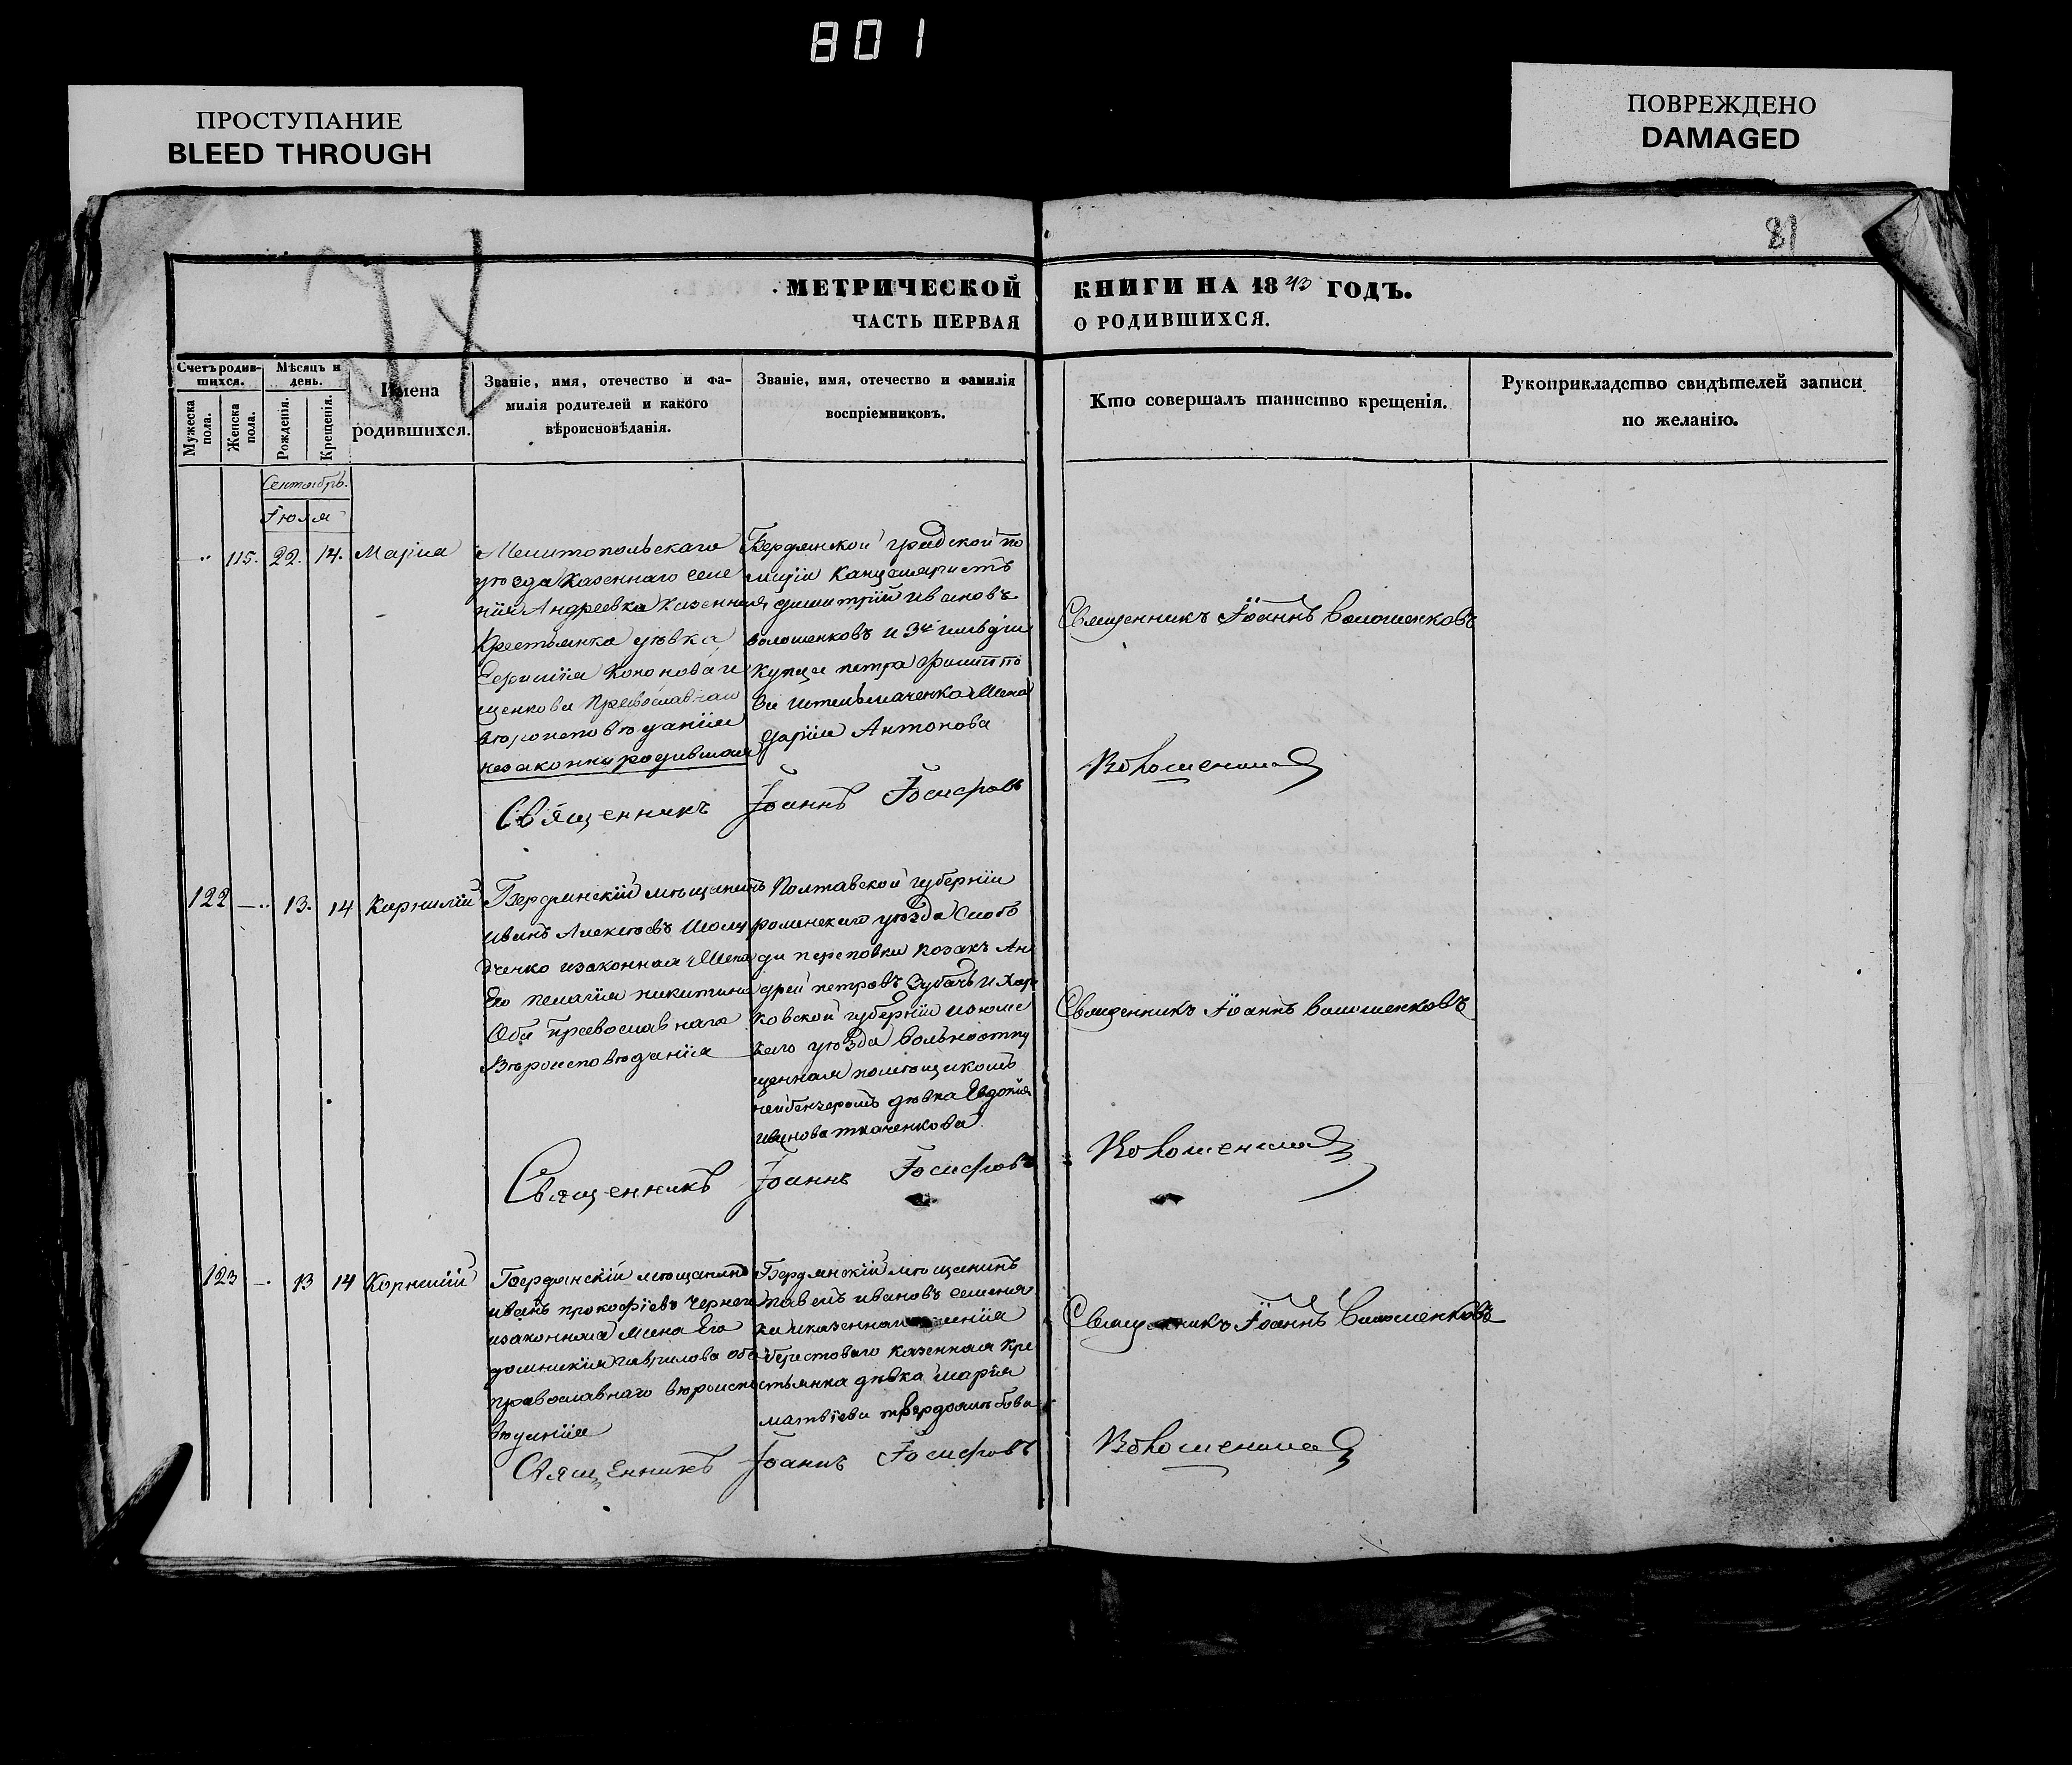 801
ПРОСТУПАНИЕ
BLEED THROUGH
ПОВРЕЖДЕНО
DAMAGED
81
МЕТРИЧЕСКОЙ КНИГИ НА 1843 ГОДЪ.
ЧАСТЬ ПЕРВАЯ О РОДИВШИХСЯ.
Счетъ родив-
шихся.
Мужеска пола.
Женска пола.
Мѣсяцъ и
день.
Рожденія.
Крещенія.
Имена
родившихся.
Званіе, имя, отечество и фа-
милія родителей и какого
вѣроисновѣданія.
Званіе, имя, отечество и фамилія
воспріемниковъ.
Кто совершалъ таинство крещенія.
Рукоприкладство свидѣтелей записи
по желанію.
Сентябрь.
Іюля
115. 22. 14. Марія
Мелитопольскаго
уѣзда казеннаго селе
нія Андреевка казенная
Крестьянка дѣвка
Кононова
щенкова Православнаго
вѣроисповѣданія
незаконнородившая
Бердянской градской по
лиціи Канцеляристъ
димитрій ивановъ
волошенковъ и 3й гильдіи
купца петра филиппо
ва жена
дарія Антонова
Священникъ Іоаннъ Іосифовъ
Священникъ Іоаннъ Волошенковъ
122 — 13. 14 Корнилій
Бердянскій мѣщанинъ
иванъ Алексѣевъ
дченко изаконная Жена
Его пелагія никитина
Оба православнаго
Вѣроисповѣданія
Полтавской губерніи
роменскаго уѣзда Слобо
ды перековки козакъ Ан
дрей петровъ Зубачь и Хар
ковской губерніи изюмс
каго уѣзда вольноотпу
щенная помѣщикомъ
дѣвка Евдокія
иванова ткаченкова
Священникъ Іоаннъ Іосифовъ
Священникъ Іоаннъ Волошенковъ
123 — 13 14 Корнилій
Бердянскій мѣщанинъ
иванъ прокофіевъ Чернега
изаконная Жена Его
домникія гаврилова оба
православнаго вѣроиспо
вѣданія
Бердянскій мѣщанинъ
павелъ ивановъ семеня
ка иказеннаго селенія
берестоваго казенная кре
стьянка дѣвка марія
матвіева твердохлѣбова
Священникъ Іоаннъ Іосифовъ
Священникъ Іоаннъ Волошенковъ